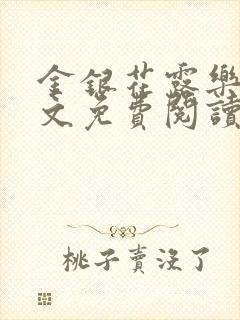 金银花露樂
文免費閱讀
桃子賣没了